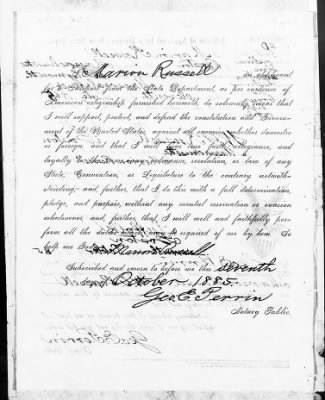 I, Marion Russell an applicant
for a Passport from the State Department, as per evidence of
American citizenship furnished herewith do solemnly swear that
I will support, protect, and defend the constitution and Govern-
ment of the United States, against all enemies whether domestic
or foreign and that I will bear true faith, allegiance, and
loyalty ordinance, resolution, or law of any
State, Convention, or Legislature to the contrary notwith-
standing; and further, that I do this with a full determination,
pledge, and purpose, without any mental reservation or evasion
whatsoever, and, further, that I will well and faithfully perform
all the duties which may be required of me by law. So
help me God Marion Russell
Subscribed and sworn to before me this seventh
October, 1885.
Geo. E. Perrin
Notary Public.